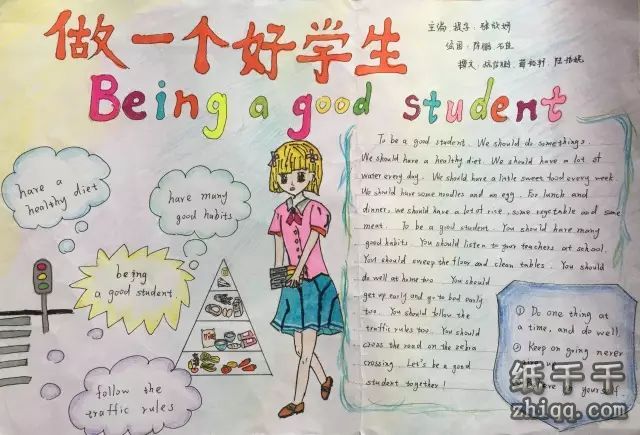 做一个好学生
Being a good student
have a
healthy diet
have many
good habits
being
a good student.
follow the
traffic rules
To be a good student. We should do somethings.
We should have a healthy diet. We should have a lot of
water every day. We should have a little sweet food every week.
We should have some noodles and an egg. For lunch and
dinner, we should have a lot of rise, some vegetable and some
meat. To be a good student. You should have many
good habits. You should listen to your teachers at school.
You should sweep the floor and clean tables. You should
do well at home too. You should
get up early and go to bed early
too. You should follow the
traffic rules too. You should
cross the road on the zebra
crossing. Let's be a good
student together!
① Do one thing at
a time, and do well.
② Keep on going never
to yourself
纸千千
zhiqq.com